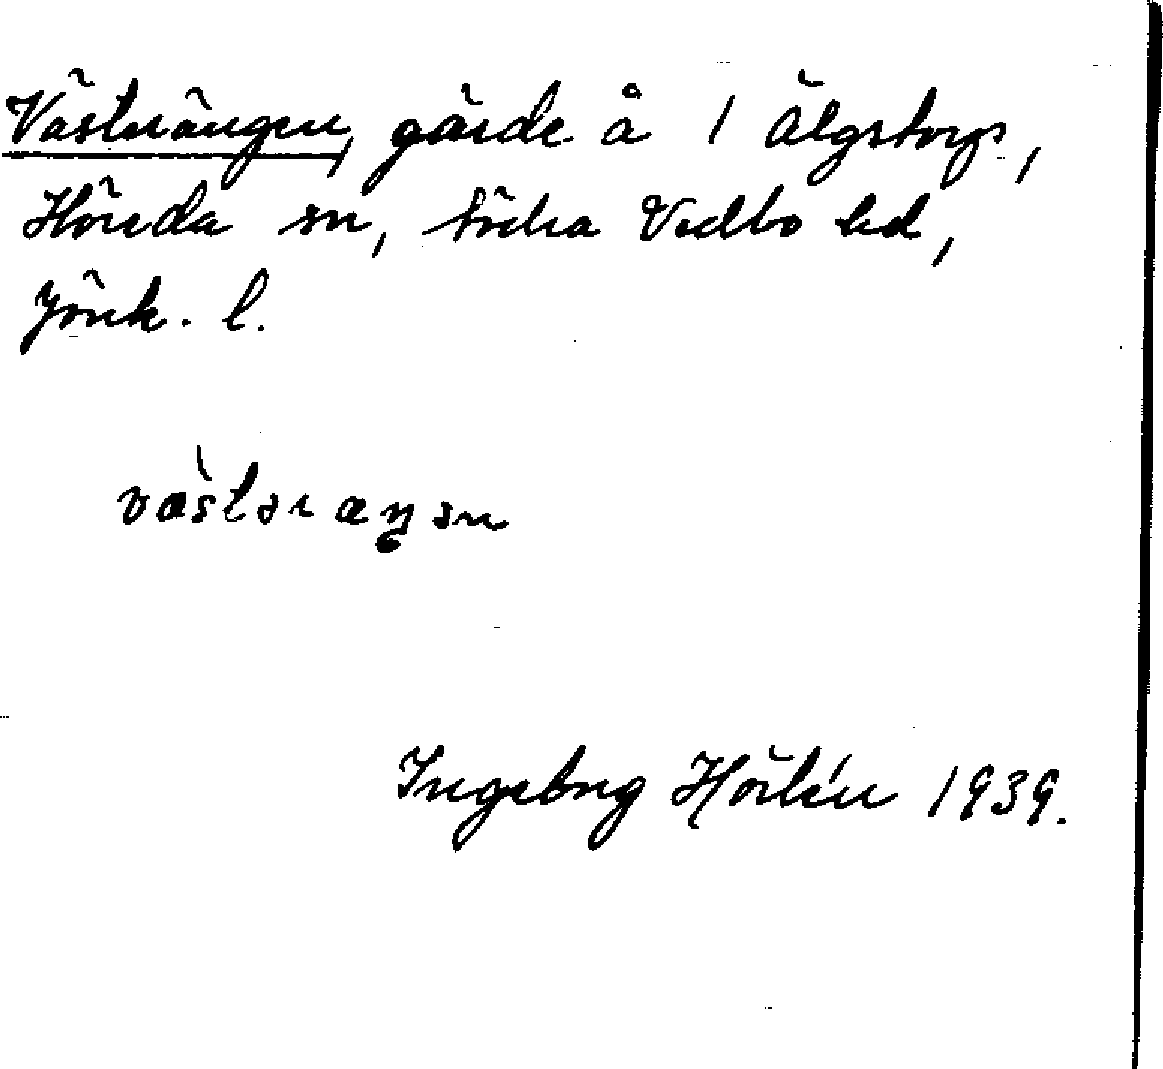 Västerängen, gärde å 1 Älgstorp,
Höreda sn, Södra Vedbo hd,
Jönk. l.
væ̀stəræŋən
Ingeborg Hörlén 1939.